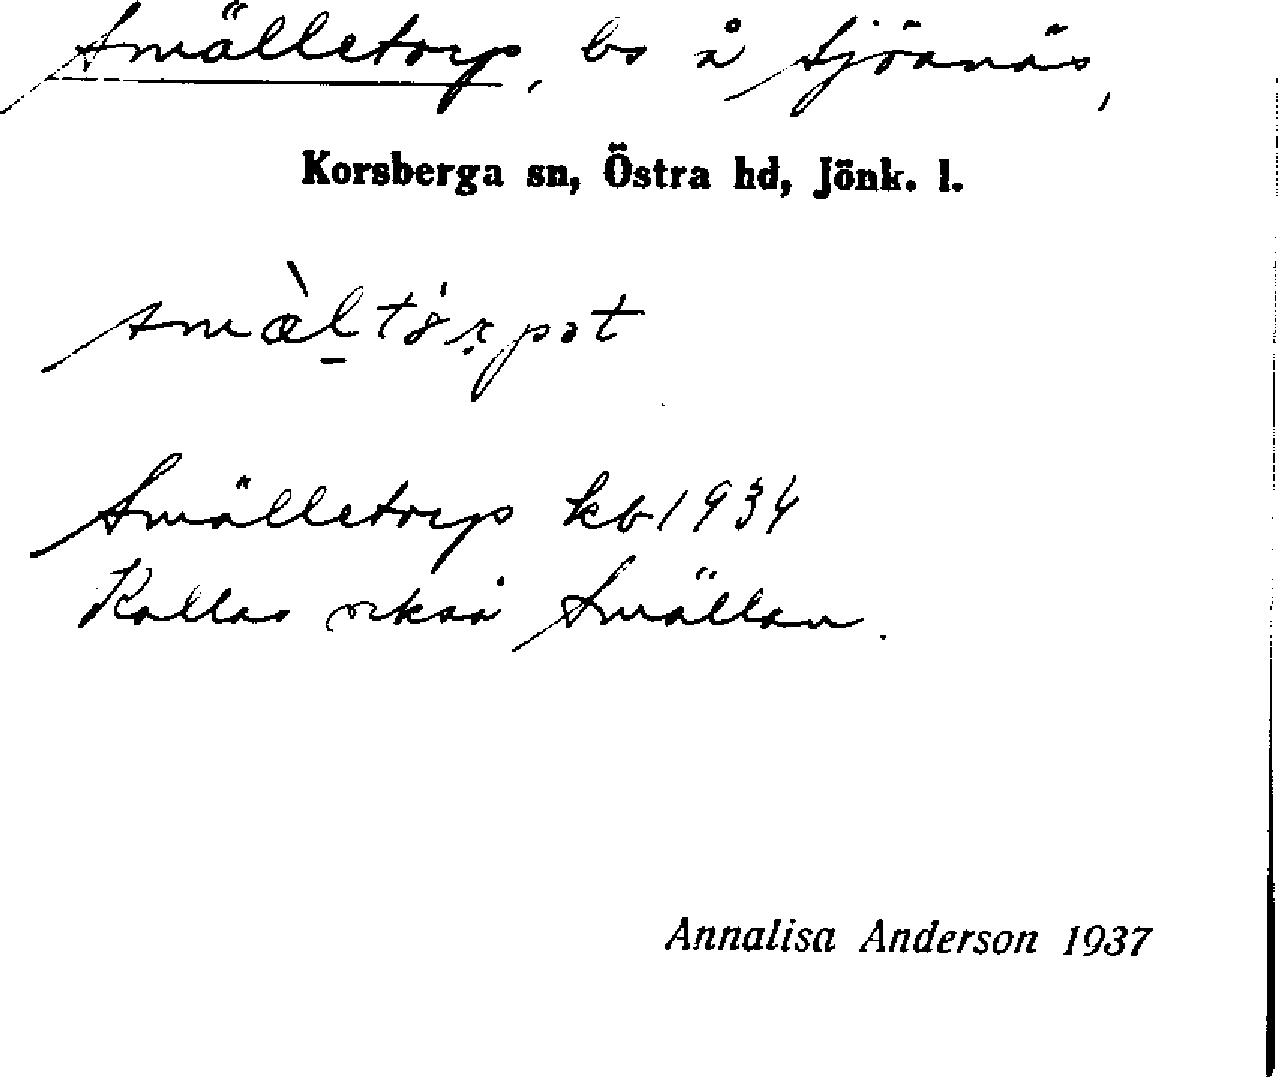 Smälletorp, bs å Sjöanäs,
Korsberga sn, Östra hd, Jönk. l.
smæ̀l̠tó̤r̤pət
Smälletorp kb 1934
Kallas också Smällan.
Annalisa Anderson 1937